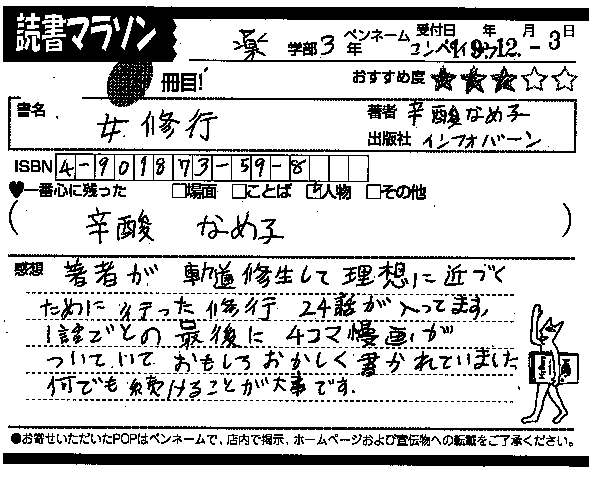 読書マラソン
冊目!
薬 学部 3 年 ペンネーム コンペイ 受付日 年 12月 3日
おすすめ度 ★★★☆☆
書名 女修行
著者 辛酸なめ子
出版社 インフォバーン
ISBN 4-901873-59-8
♥一番心に残った □場面 □ことば ☑人物 □その他
( 辛酸 なめ子 )
感想 著者が 軌道修生して 理想に近づく
ために 行った 修行 24話が入ってます。
1話ごとの 最後に 4コマ漫画が
ついていて おもしろおかしく書かれていました
何でも続けることが大事です.
●お寄せいただいたPOPはペンネームで、店内で掲示、ホームページおよび宣伝物への転載をご了承ください。